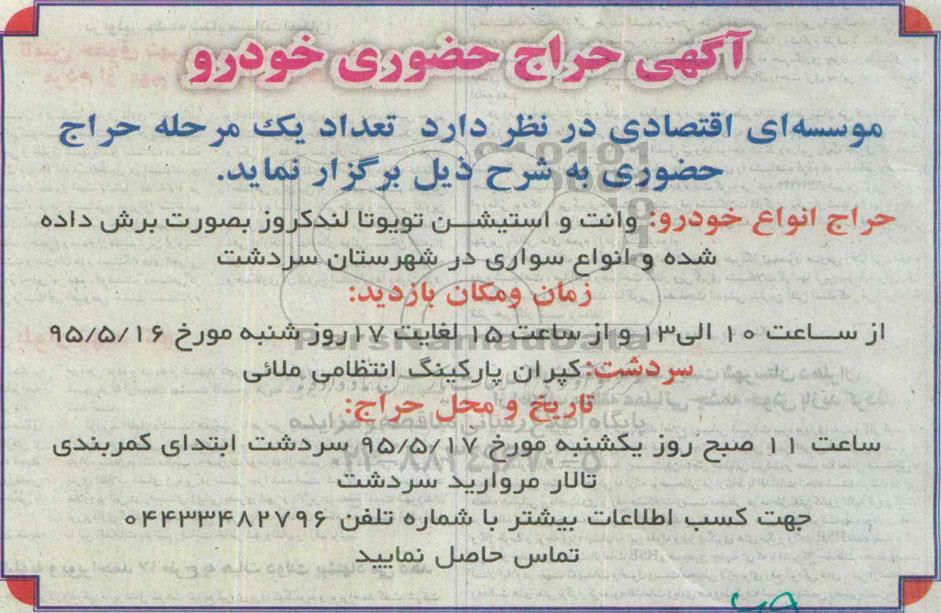 آگهی حراج حضوری خودرو
موسسه‌ای اقتصادی در نظر دارد تعداد یک مرحله حراج
حضوری به شرح ذیل برگزار نماید.
حراج انواع خودرو: وانت و استیشن تویوتا لندکروز بصورت برش داده
شده و انواع سواری در شهرستان سردشت
زمان ومکان بازدید:
از ساعت ۱۰ الی۱۳ و از ساعت ۱۵ لغایت ۱۷روز شنبه مورخ ۹۵/۵/۱۶
سردشت:کپران پارکینگ انتظامی ملائی
تاریخ و محل حراج:
ساعت ۱۱ صبح روز یکشنبه مورخ ۹۵/۵/۱۷ سردشت ابتدای کمربندی
تالار مروارید سردشت
جهت کسب اطلاعات بیشتر با شماره تلفن ۰۴۴۳۳۴۸۲۷۹۶
تماس حاصل نمایید
ParsNamadData
پایگاه اطلاع رسانی مناقصه و مزایده